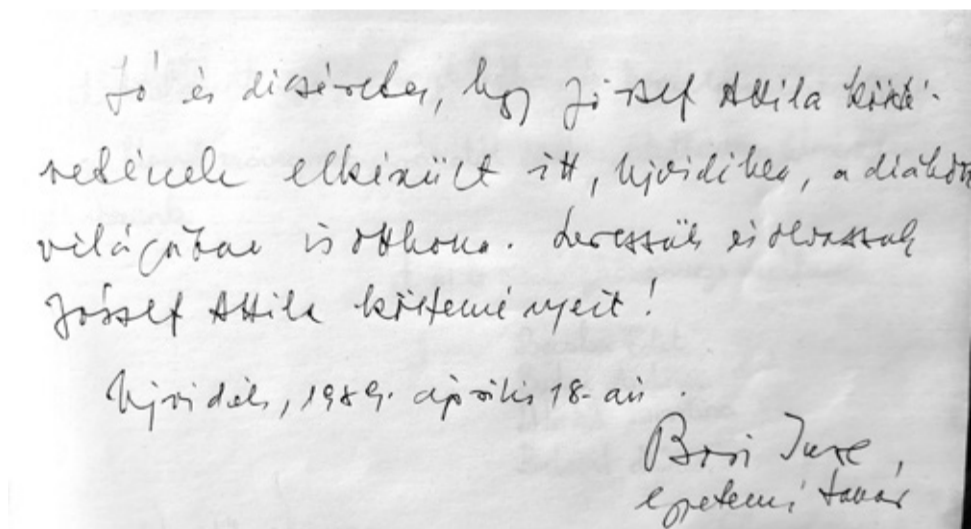 Jó és dicséretes, hogy József Attila költé-
szetének elkészült itt, Újvidéken, a diákok
világában is otthona. Szeressük és olvassuk
József Attila költeményeit!
Újvidék, 1989. április 18-án.
Bori Imre,
egyetemi tanár